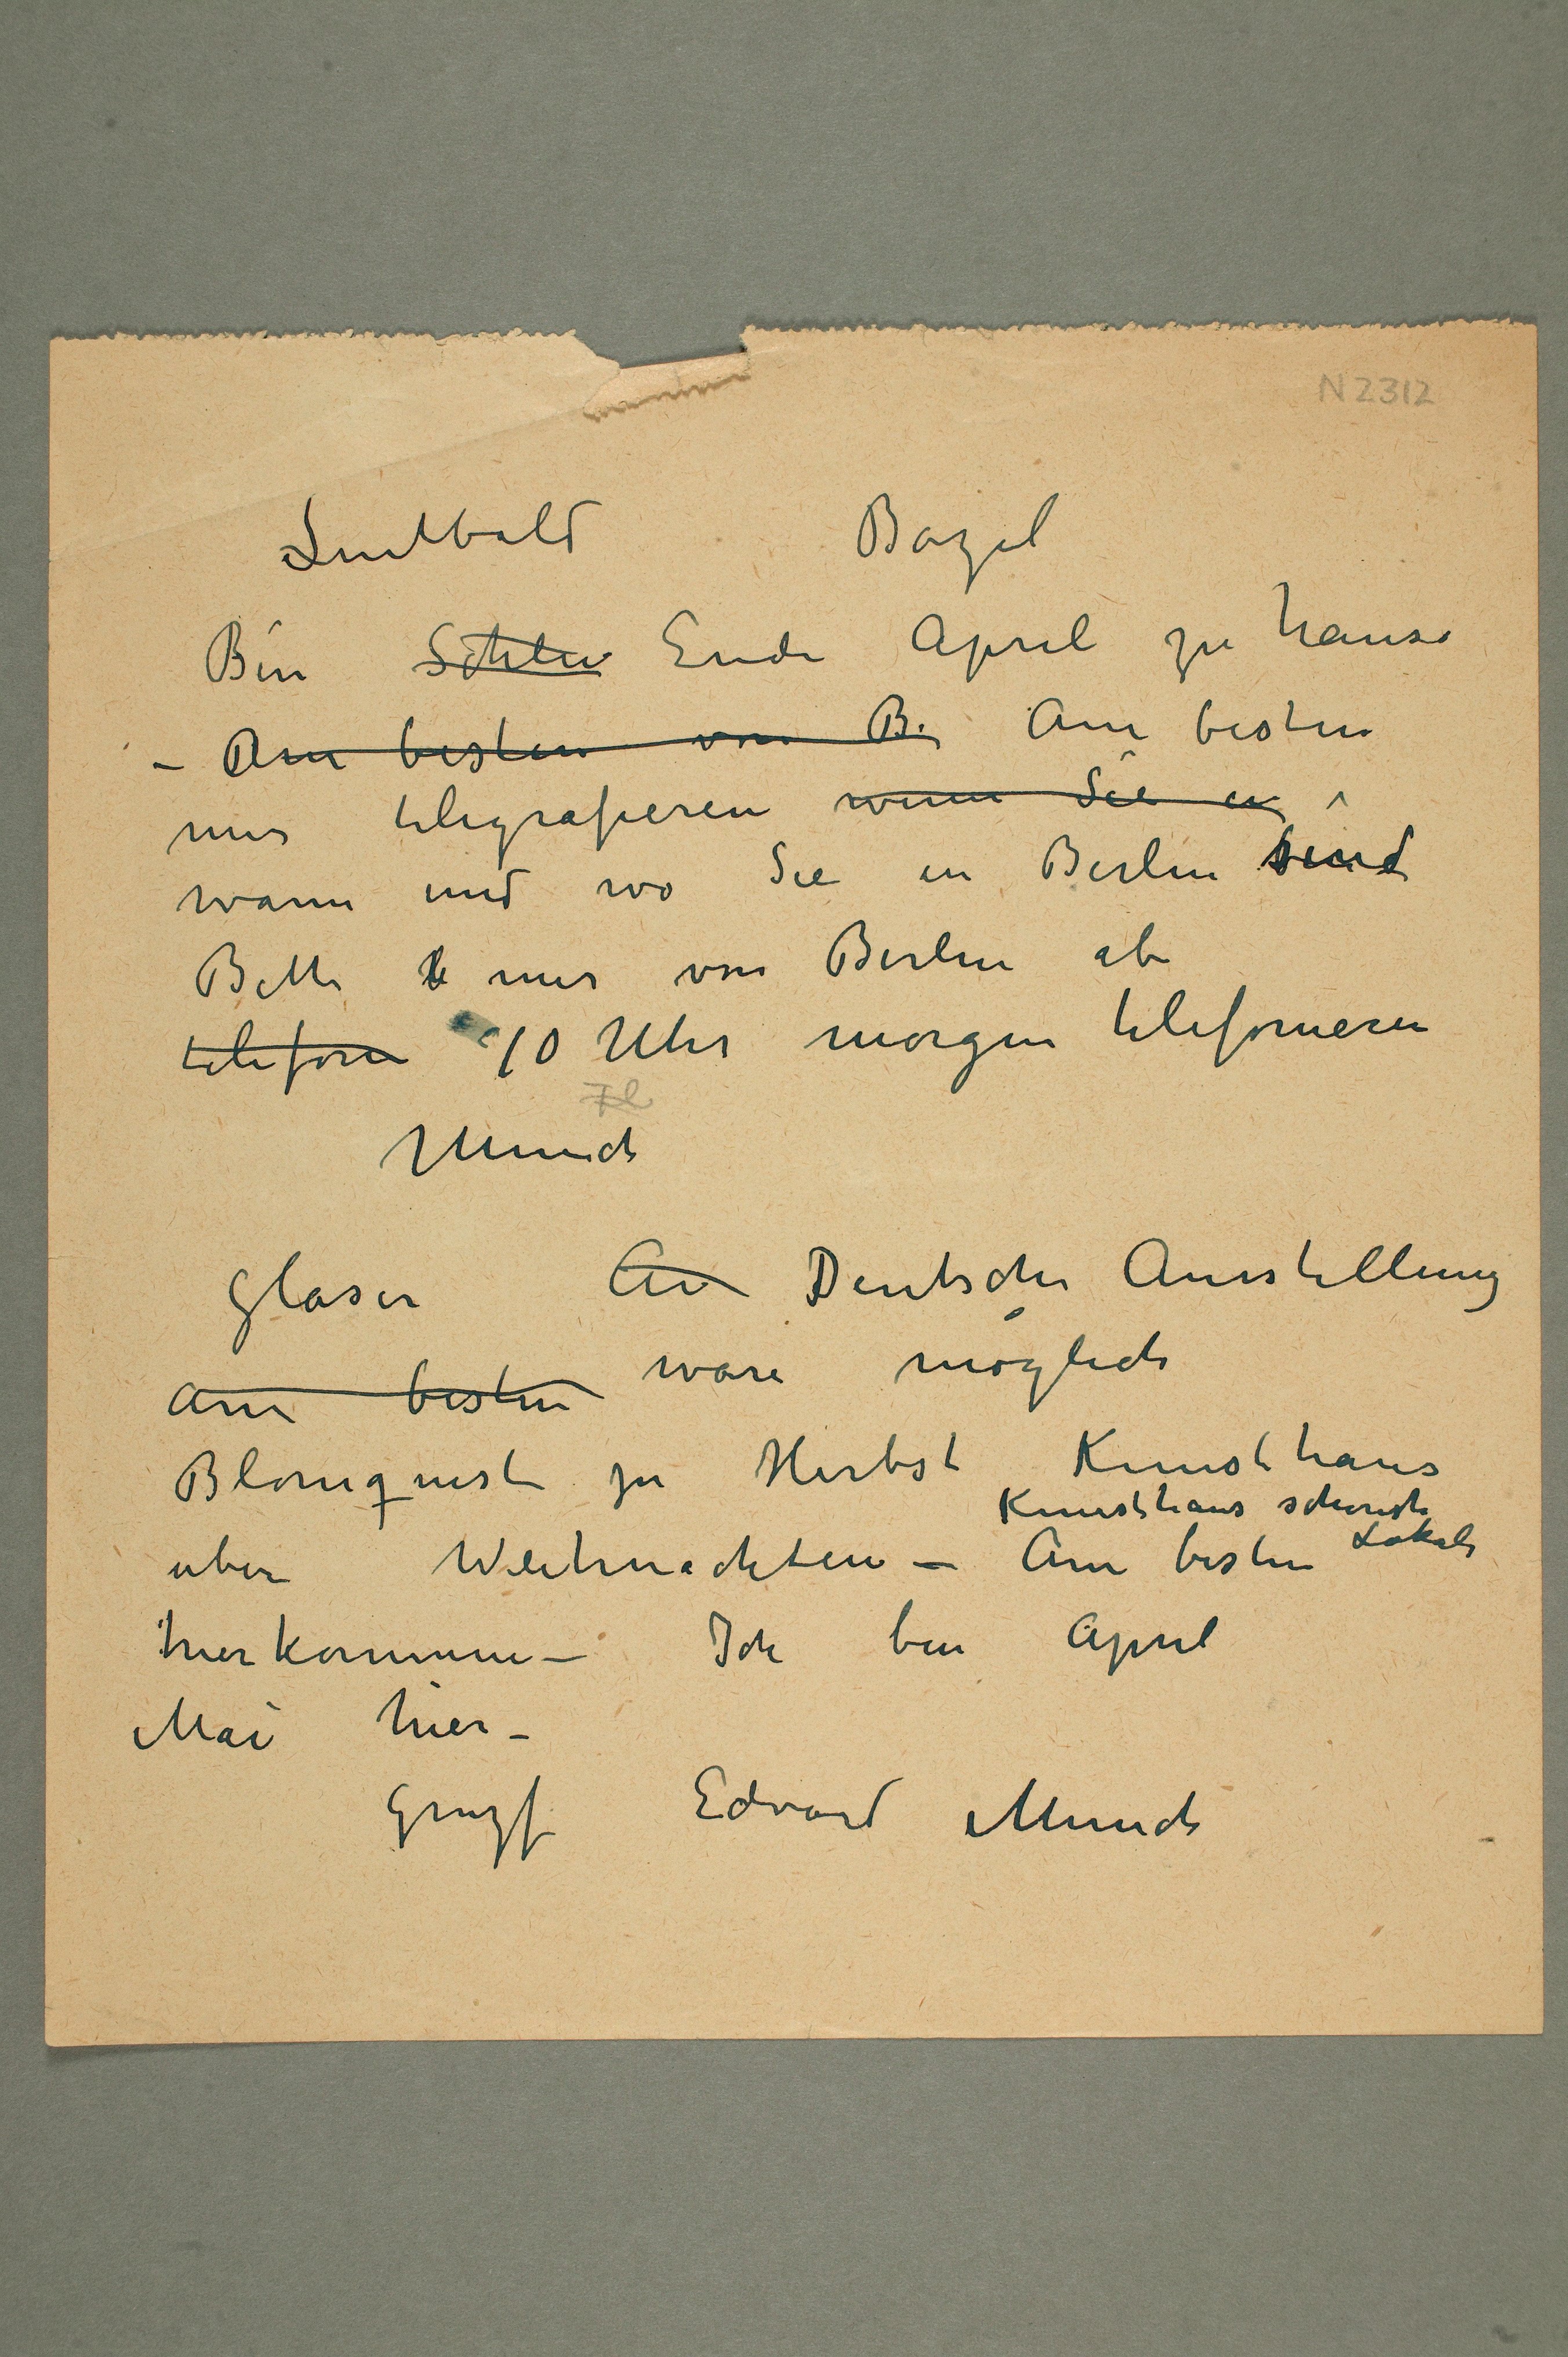 N 2312
Bazel
Bin Ende April zu hause
– Am besten von B. Am besten
mir telegrafieren wenn Sie in
wann und wo Sie in Berlin sind
Bitte mir von Berlin ab
telefon 10 Uhr morgen telefonieren
Munch
Glaser Deutsche Ausstellung
am besten wäre möglich
Blomqvist zu Herbst Kunsthaus
Kunsthaus schönste
Lokale
uber Weihnachten – Am besten
hierkommen – Ich bin April
Mai hier –
Edvard Munch